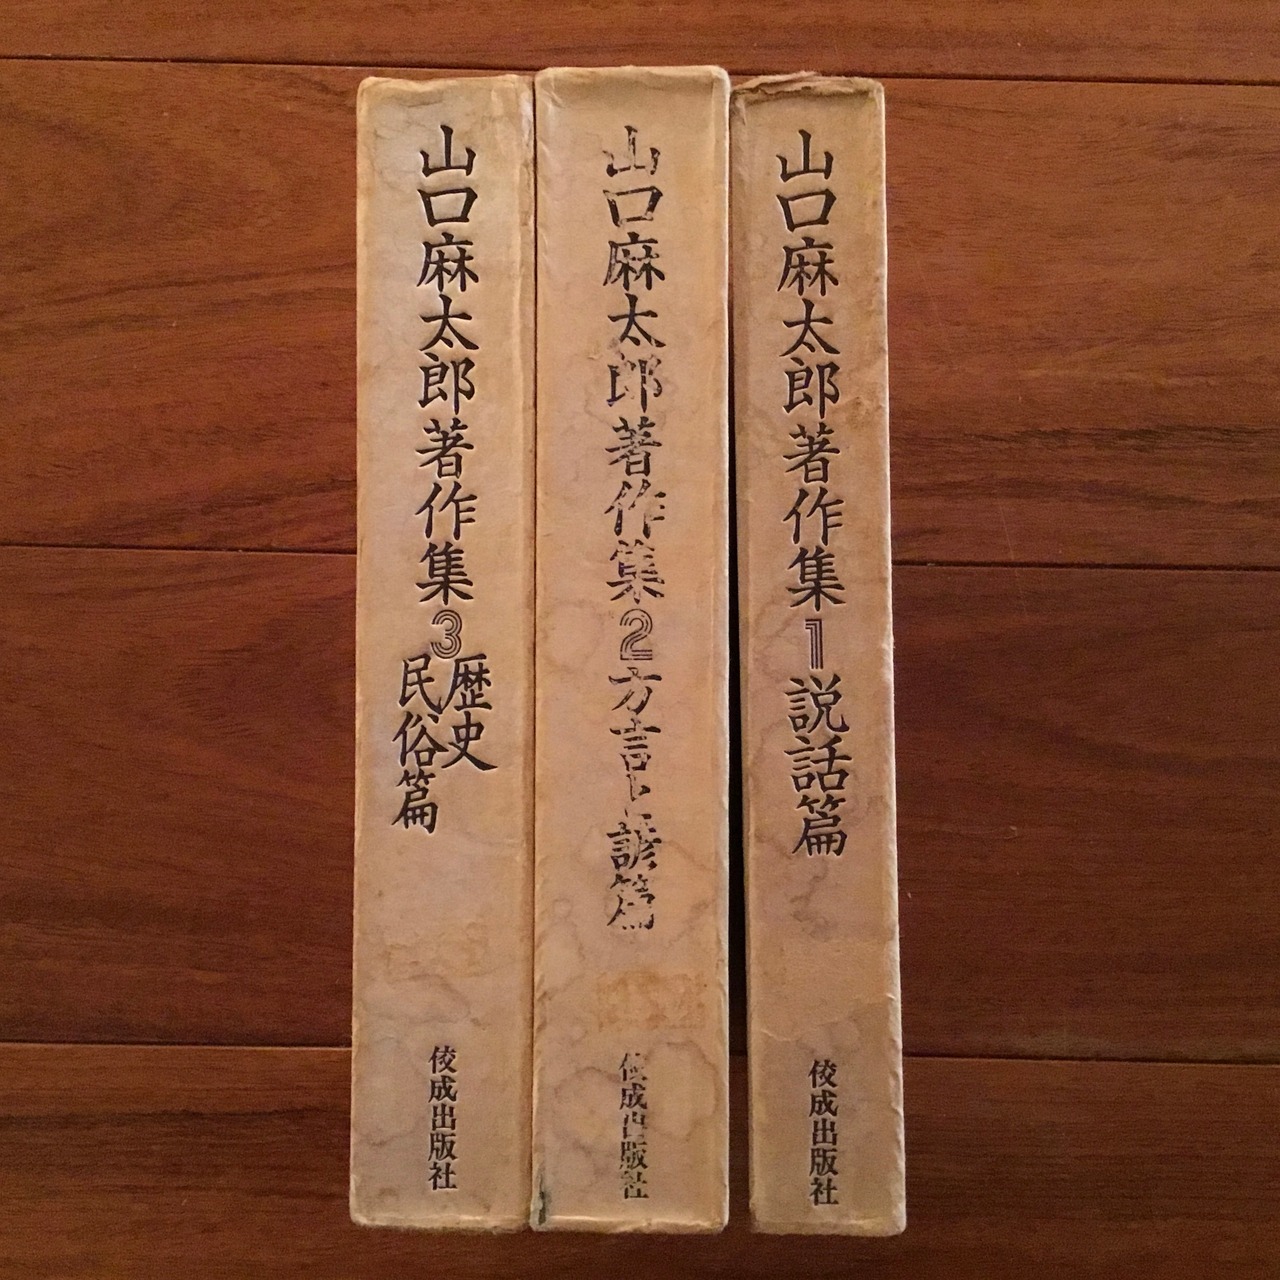 山口麻太郎著作集1説話篇
佼成出版社
山口麻太郎著作集2方言と諺篇
佼成出版社
山口麻太郎著作集3歴史
民俗篇
佼成出版社